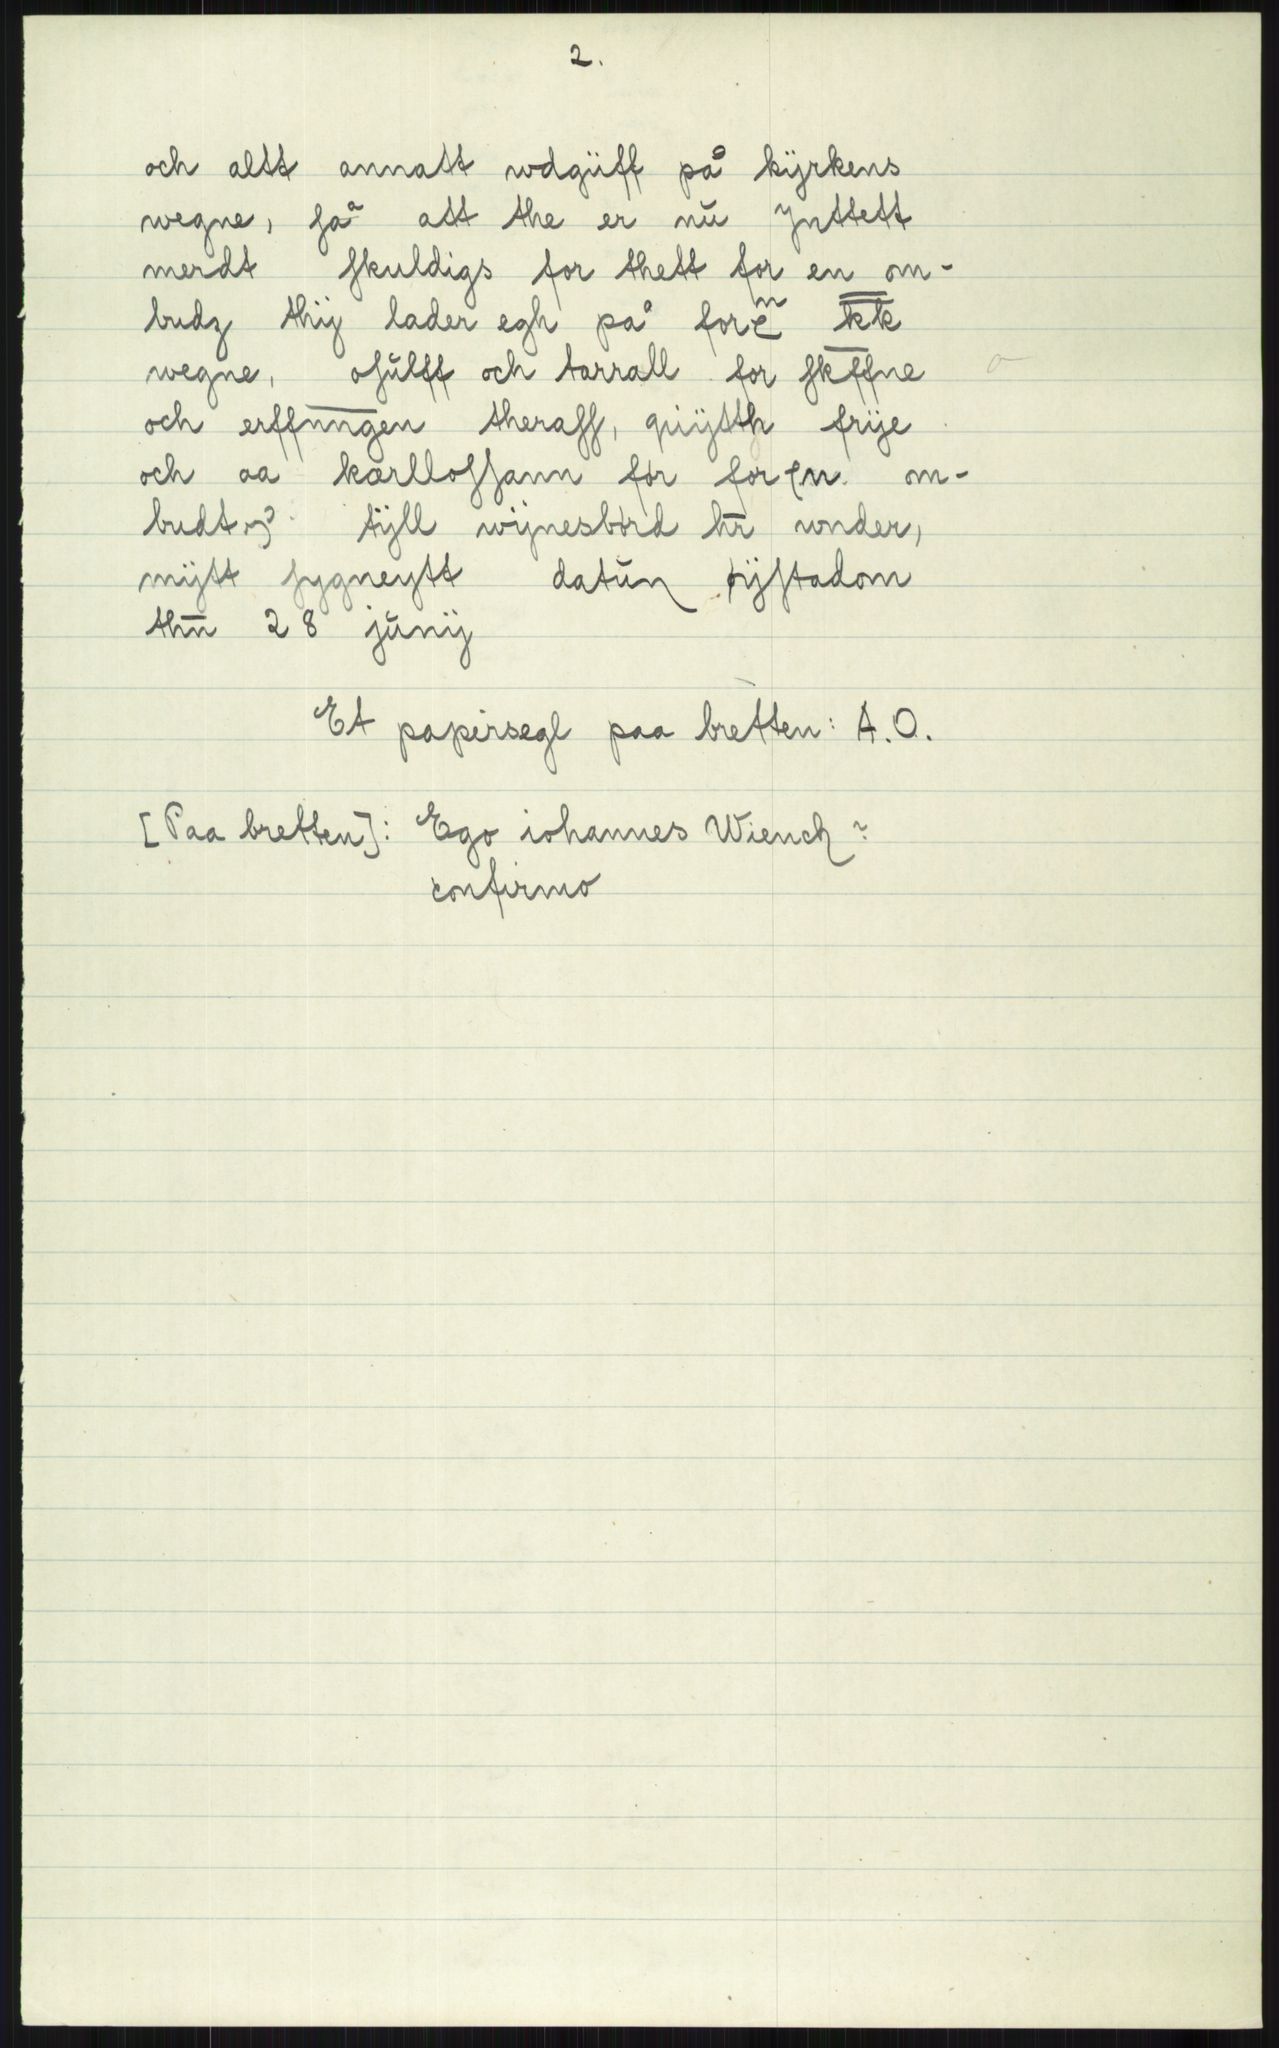 2.
och altt annatt wdgüff på kÿrkens
wegne, så att the er nŭ Ynttett
merdt skuldigs for thett for en om-
budz thÿ lader egh på foreⁿ̄ k̅k̅
wegne, osŭlff och tarrall for skeffne
och erffnn̄gen theraff, qŭÿtth frÿe
och aa karllossann for foren om-
budt tÿll wÿnesbŭrd hr̄ wnder,
mÿtt sygneytt datŭm ÿstadom
thn̄ 28 jŭnÿ
Et papirsegl paa bretten: A.O.
[Paa bretten]: Ego iohannes Wiench ?
confirmo